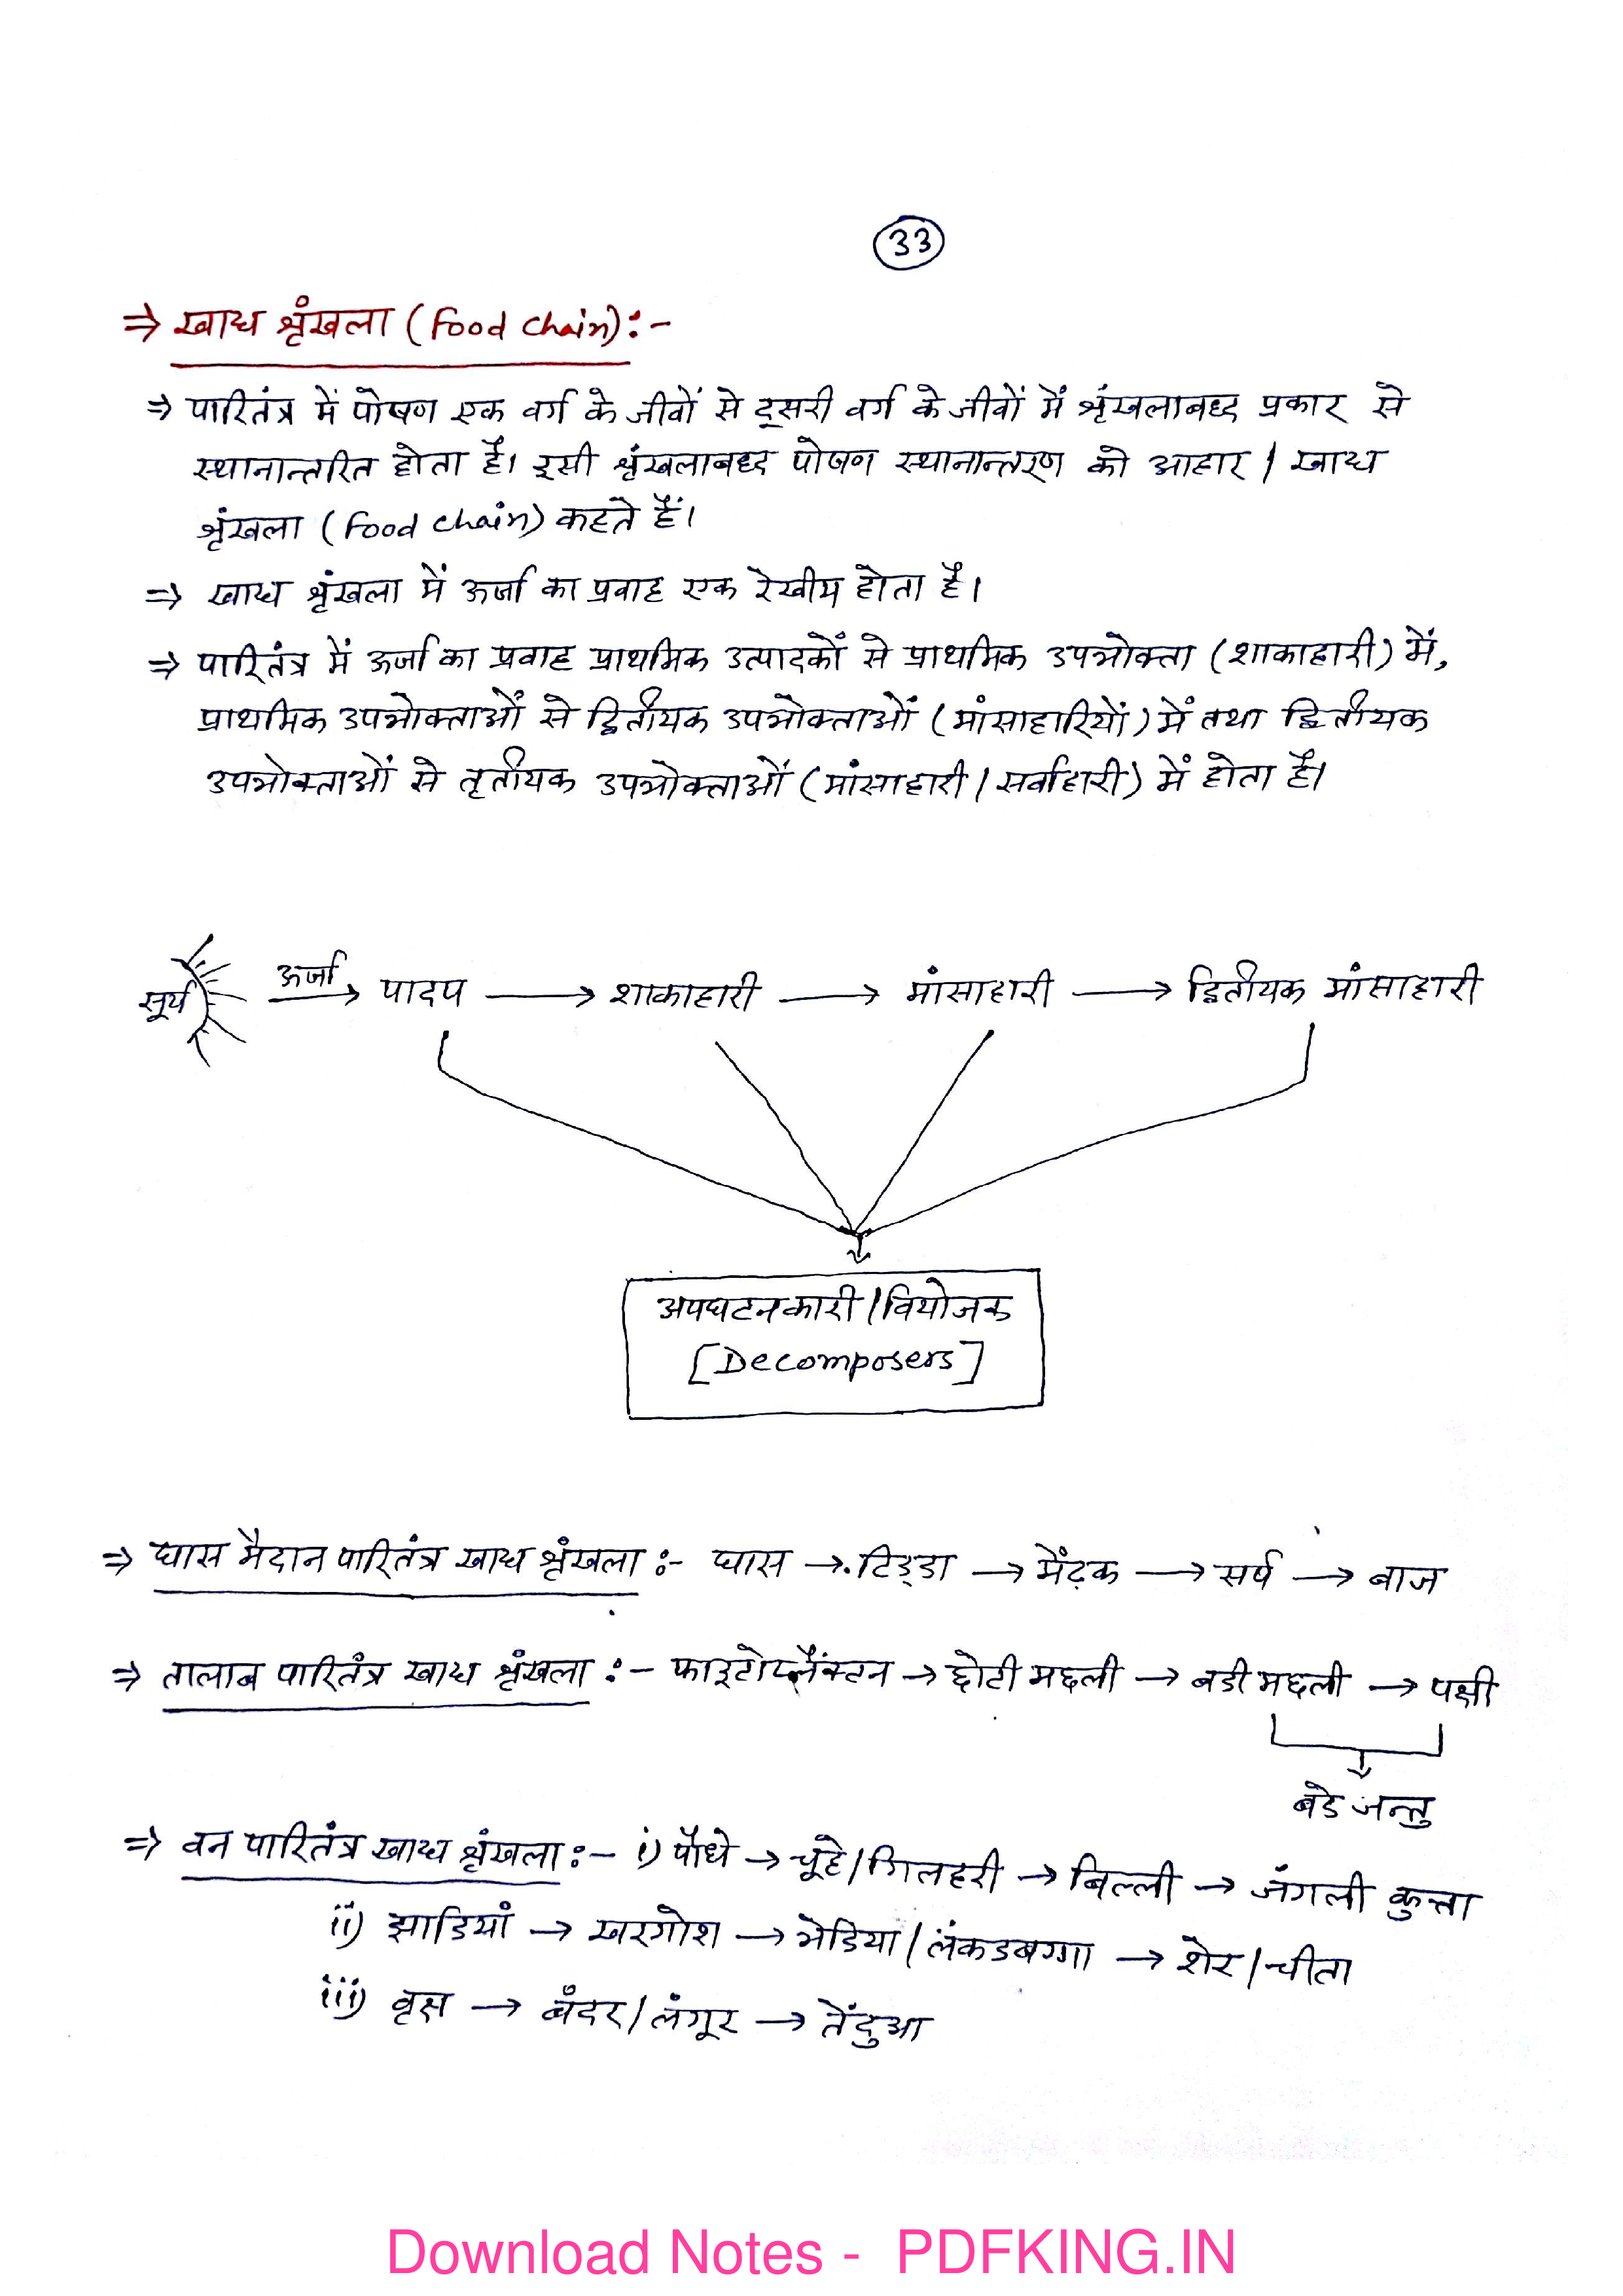 33
⇒ खाद्य श्रृंखला (Food Chain):-
⇒ पारितंत्र में पोषण एक वर्ग के जीवों से दूसरी वर्ग के जीवों में श्रृंखलाबद्ध प्रकार से
स्थानान्तरित होता है। इसी श्रृंखलाबद्ध पोषण स्थानान्तरण को आहार / खाद्य
श्रृंखला (Food chain) कहते हैं।
⇒ खाद्य श्रृंखला में ऊर्जा का प्रवाह एक रेखीय होता है।
⇒ पारितंत्र में ऊर्जा का प्रवाह प्राथमिक उत्पादकों से प्राथमिक उपभोक्ता (शाकाहारी) में,
प्राथमिक उपभोक्ताओं से द्वितीयक उपभोक्ताओं (मांसाहारियों) में तथा द्वितीयक
उपभोक्ताओं से तृतीयक उपभोक्ताओं (मांसाहारी / सर्वाहारी) में होता है।
सूर्य ऊर्जा → पादप → शाकाहारी → मांसाहारी → द्वितीयक मांसाहारी
अपघटनकारी / वियोजक
[Decomposers]
⇒ घास मैदान पारितंत्र खाद्य श्रृंखला :- घास → टिड्डा → मेंढ़क → सर्प → बाज
⇒ तालाब पारितंत्र खाद्य श्रृंखला :- फाइटोप्लैंक्टन → छोटी मछली → बडी मछली → पक्षी
बडे जन्तु
⇒ वन पारितंत्र खाद्य श्रृंखला :- i) पौधे → चूहे / गिलहरी → बिल्ली → जंगली कुत्ता
ii) झाडियां → खरगोश → भेडिया / लंकडबग्गा → शेर / चीता
iii) वृक्ष → बंदर / लंगूर → तेंदुआ
Download Notes - PDFKING.IN